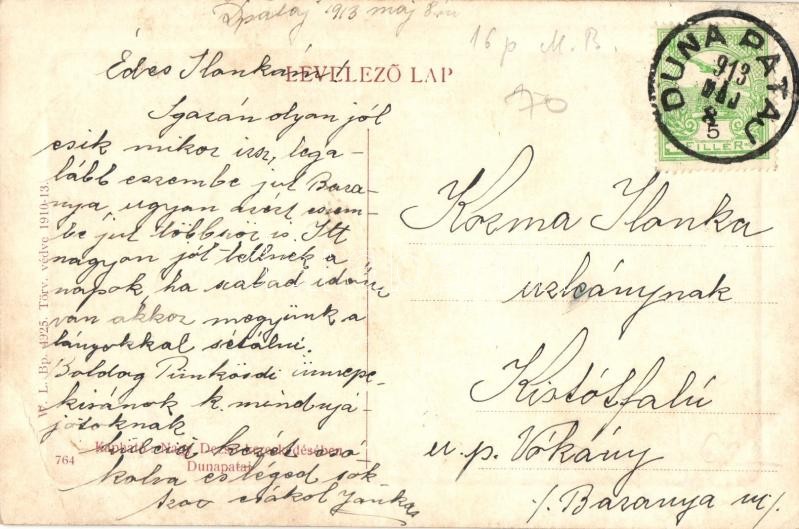 Dpataj 1913 máj 8án
16 p M. B.
70
LEVELEZŐ LAP
DUNAPATAJ
913
MÁJ
8
5
FILLER
Édes Ilonkám!
Igazán olyan jól
esik mikor irsz, lega-
lább eszembe jut Bara-
nya, ugyan azért eszem-
be jut többször is. Itt
nagyon jól telnek a
napok, ha szabad időm
van akkor megyünk a
lányokkal sétálni.
Boldog Pünkösdi ünnepe-
ket kivánok k. mindnyá-
jotoknak
kezét csó-
kolva es téged sok-
szor csókol Janka
Kozma Ilonka
urleánynak
Kistótfalú
u. p. Vókány
/. Baranya m/.
W. L. Bp. 4925. Törv. védve 1910-13.
764
Kapható: Nagy Dezső kereskedésében
Dunapataj